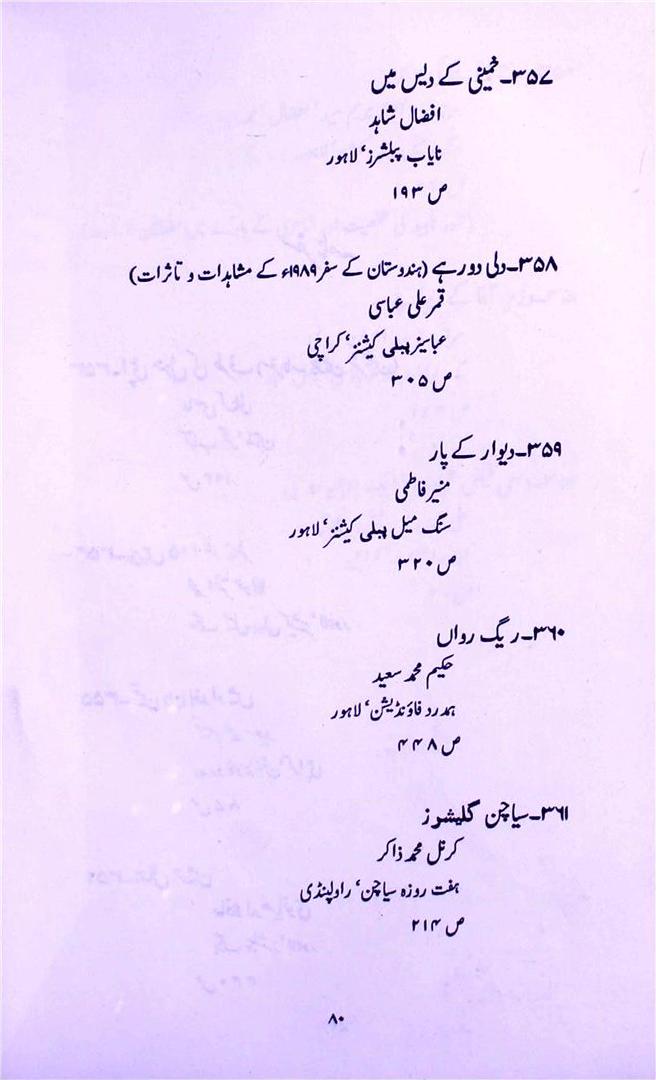 ۳۵۷۔خمینی کے دیس میں
افضال شاہد
نایاب پبلشرز، لاہور
ص ۱۹۳
۳۵۸۔دلی دور ہے (ہندوستان کے سفر ۱۹۸۹ء کے مشاہدات و تاثرات)
قمر علی عباسی
عباسیز پبلی کیشنز، کراچی
ص ۳۰۵
۳۵۹۔دیوار کے پار
منیر فاطمی
سنگ میل پبلی کیشنز، لاہور
ص ۳۲۰
۳۶۰۔ریگ رواں
حکیم محمد سعید
ہمدرد فاؤنڈیشن، لاہور
ص ۴۴۸
۳۶۱۔سیاچن گلیشرز
کرنل محمد ذاکر
ہفت روزہ سیاچن، راولپنڈی
ص ۲۱۴
۸۰